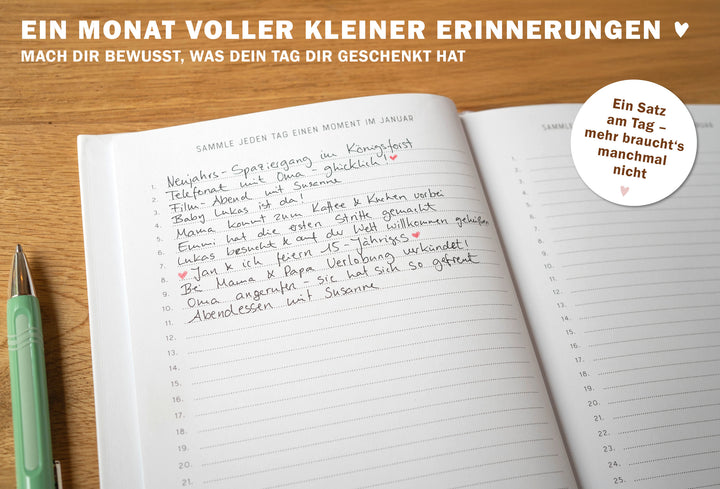 EIN MONAT VOLLER KLEINER ERINNERUNGEN ♥
MACH DIR BEWUSST, WAS DEIN TAG DIR GESCHENKT HAT
Ein Satz
am Tag –
mehr braucht's
manchmal
nicht
♥
SAMMLE JEDEN TAG EINEN MOMENT IM JANUAR
1. Neujahrs-Spaziergang im Königsforst
2. Telefonat mit Oma - glücklich! ♥
3. Film-Abend mit Susanne
4. Baby Lukas ist da!
5. Mama kommt zum Kaffee & Kuchen vorbei
6. Emmi hat die ersten Schritte gemacht
7. Lukas besucht & auf der Welt willkommen geheißen
8. ♥ Jan & ich feiern 15-Jähriges ♥
9. Bei Mama & Papa Verlobung verkündet!
10. Oma angerufen - sie hat sich so gefreut
11. Abendessen mit Susanne
12.
13.
14.
15.
16.
17.
18.
19.
20.
21.
1.
2.
3.
4.
5.
6.
7.
8.
9.
10.
11.
12.
13.
14.
15.
16.
17.
18.
19.
20.
21.
22.
23.
24.
25.